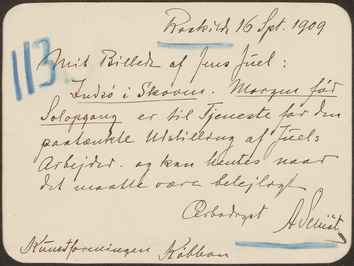 Roskilde 16 Spt. 1909
113
Mit Billede af Jens Juel:
Indsø i Skoven. Morgen før
Solopgang er til Tjeneste for den
paatænkte Udstilling af Juels
Arbejder. og kan hentes naar
det maatte være belejligt
Ærbødigst
Kunstforeningen Kbhvn